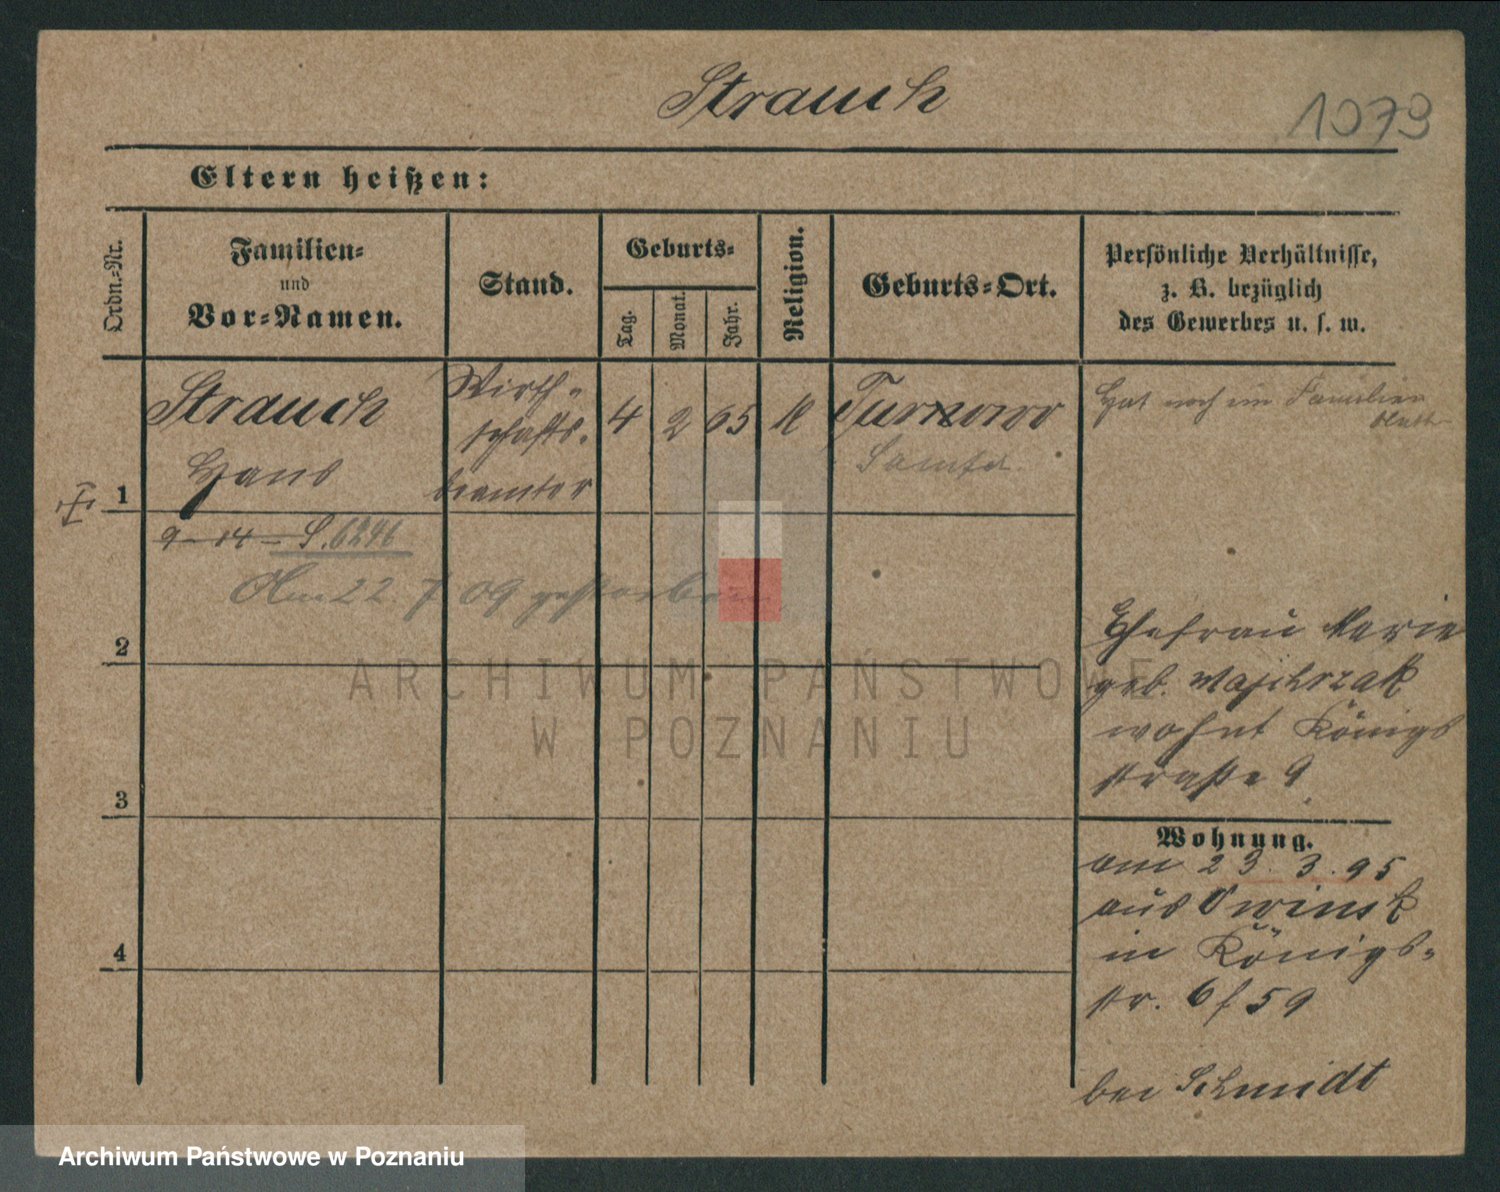 Strauch
1073
Eltern heißen:
Ordn.-Nr.
Familien-
und
Vor-Namen.
Stand.
Geburts-
Tag.
Monat.
Jahr.
Religion.
Geburts-Ort.
Persönliche Verhältnisse,
z. B. bezüglich
des Gewerbes u. s. w.
1
Strauch
Hans
Wirth-
schafts-
beamter
4 2 65 K
Turnowo
Samter
Hat noch ein Familien
blatt
9-14- S. 6246
Am 22. 7 09 gestorben
2
Ehefrau Marie
geb. Wajchrzak
wohnt Königs
straße 9
3
Wohnung.
am 23. 3. 95
aus Owinsk
in Königs-
str. 6 / 59
4
bei Schmidt
ARCHIWUM PAŃSTWOWE
W POZNANIU
Archiwum Państwowe w Poznaniu